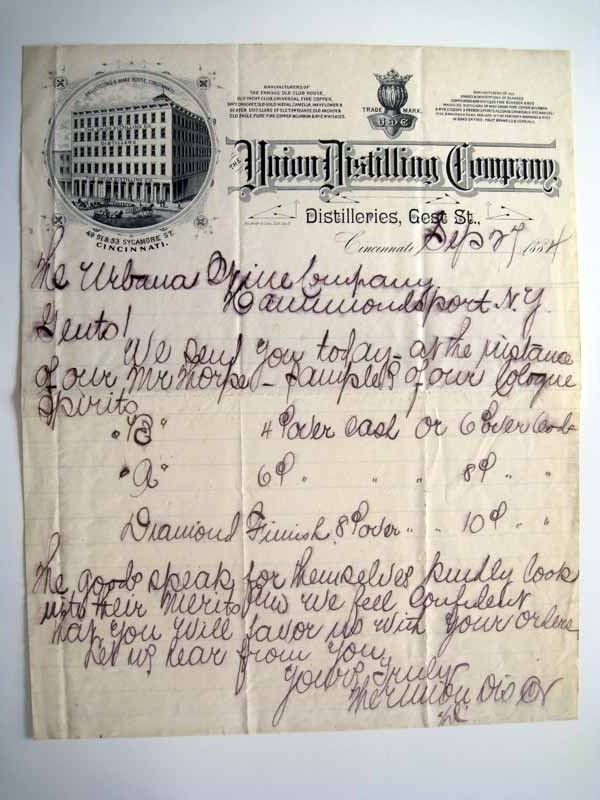 DISTILLING & WARE HOUSE, CINCINNATI.
THE UNION DISTILLING CO.
DISTILLERS
49 51 & 53 SYCAMORE ST.
CINCINNATI.
MANUFACTURERS OF
THE FAMOUS OLD CLUB HOUSE,
TRADE MARK.
U D C
THE Union Distilling Company,
Distilleries, Gest St.,
Cincinnati, Sep 27 1884
The Urbana Wine Company
Hammondsport N.Y.
Gents!
We send you today - at the instance
of our Mr Thorpe - samples of our Cologne
Spirits
"B" 4¢ over cash or 6¢ over
"A" 6¢ " " 8¢ " "
Diamond Finish 8¢ over " " 10¢ " "
The goods speak for themselves kindly look
into their merits and we feel confident
that you will favor us with your orders
Let us hear from you
Yours Truly
The Union Dis Co